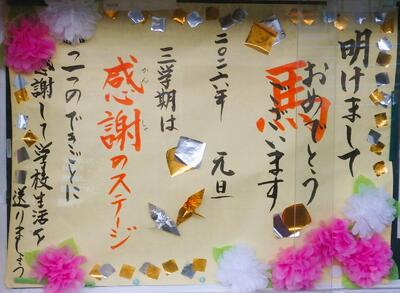 明けまして
おめでとう
ございます
馬
二〇二六年 元旦
三学期は
感謝のステージ
かん しゃ
一つ一つのできごとに
感謝して学校生活を
送りましょう